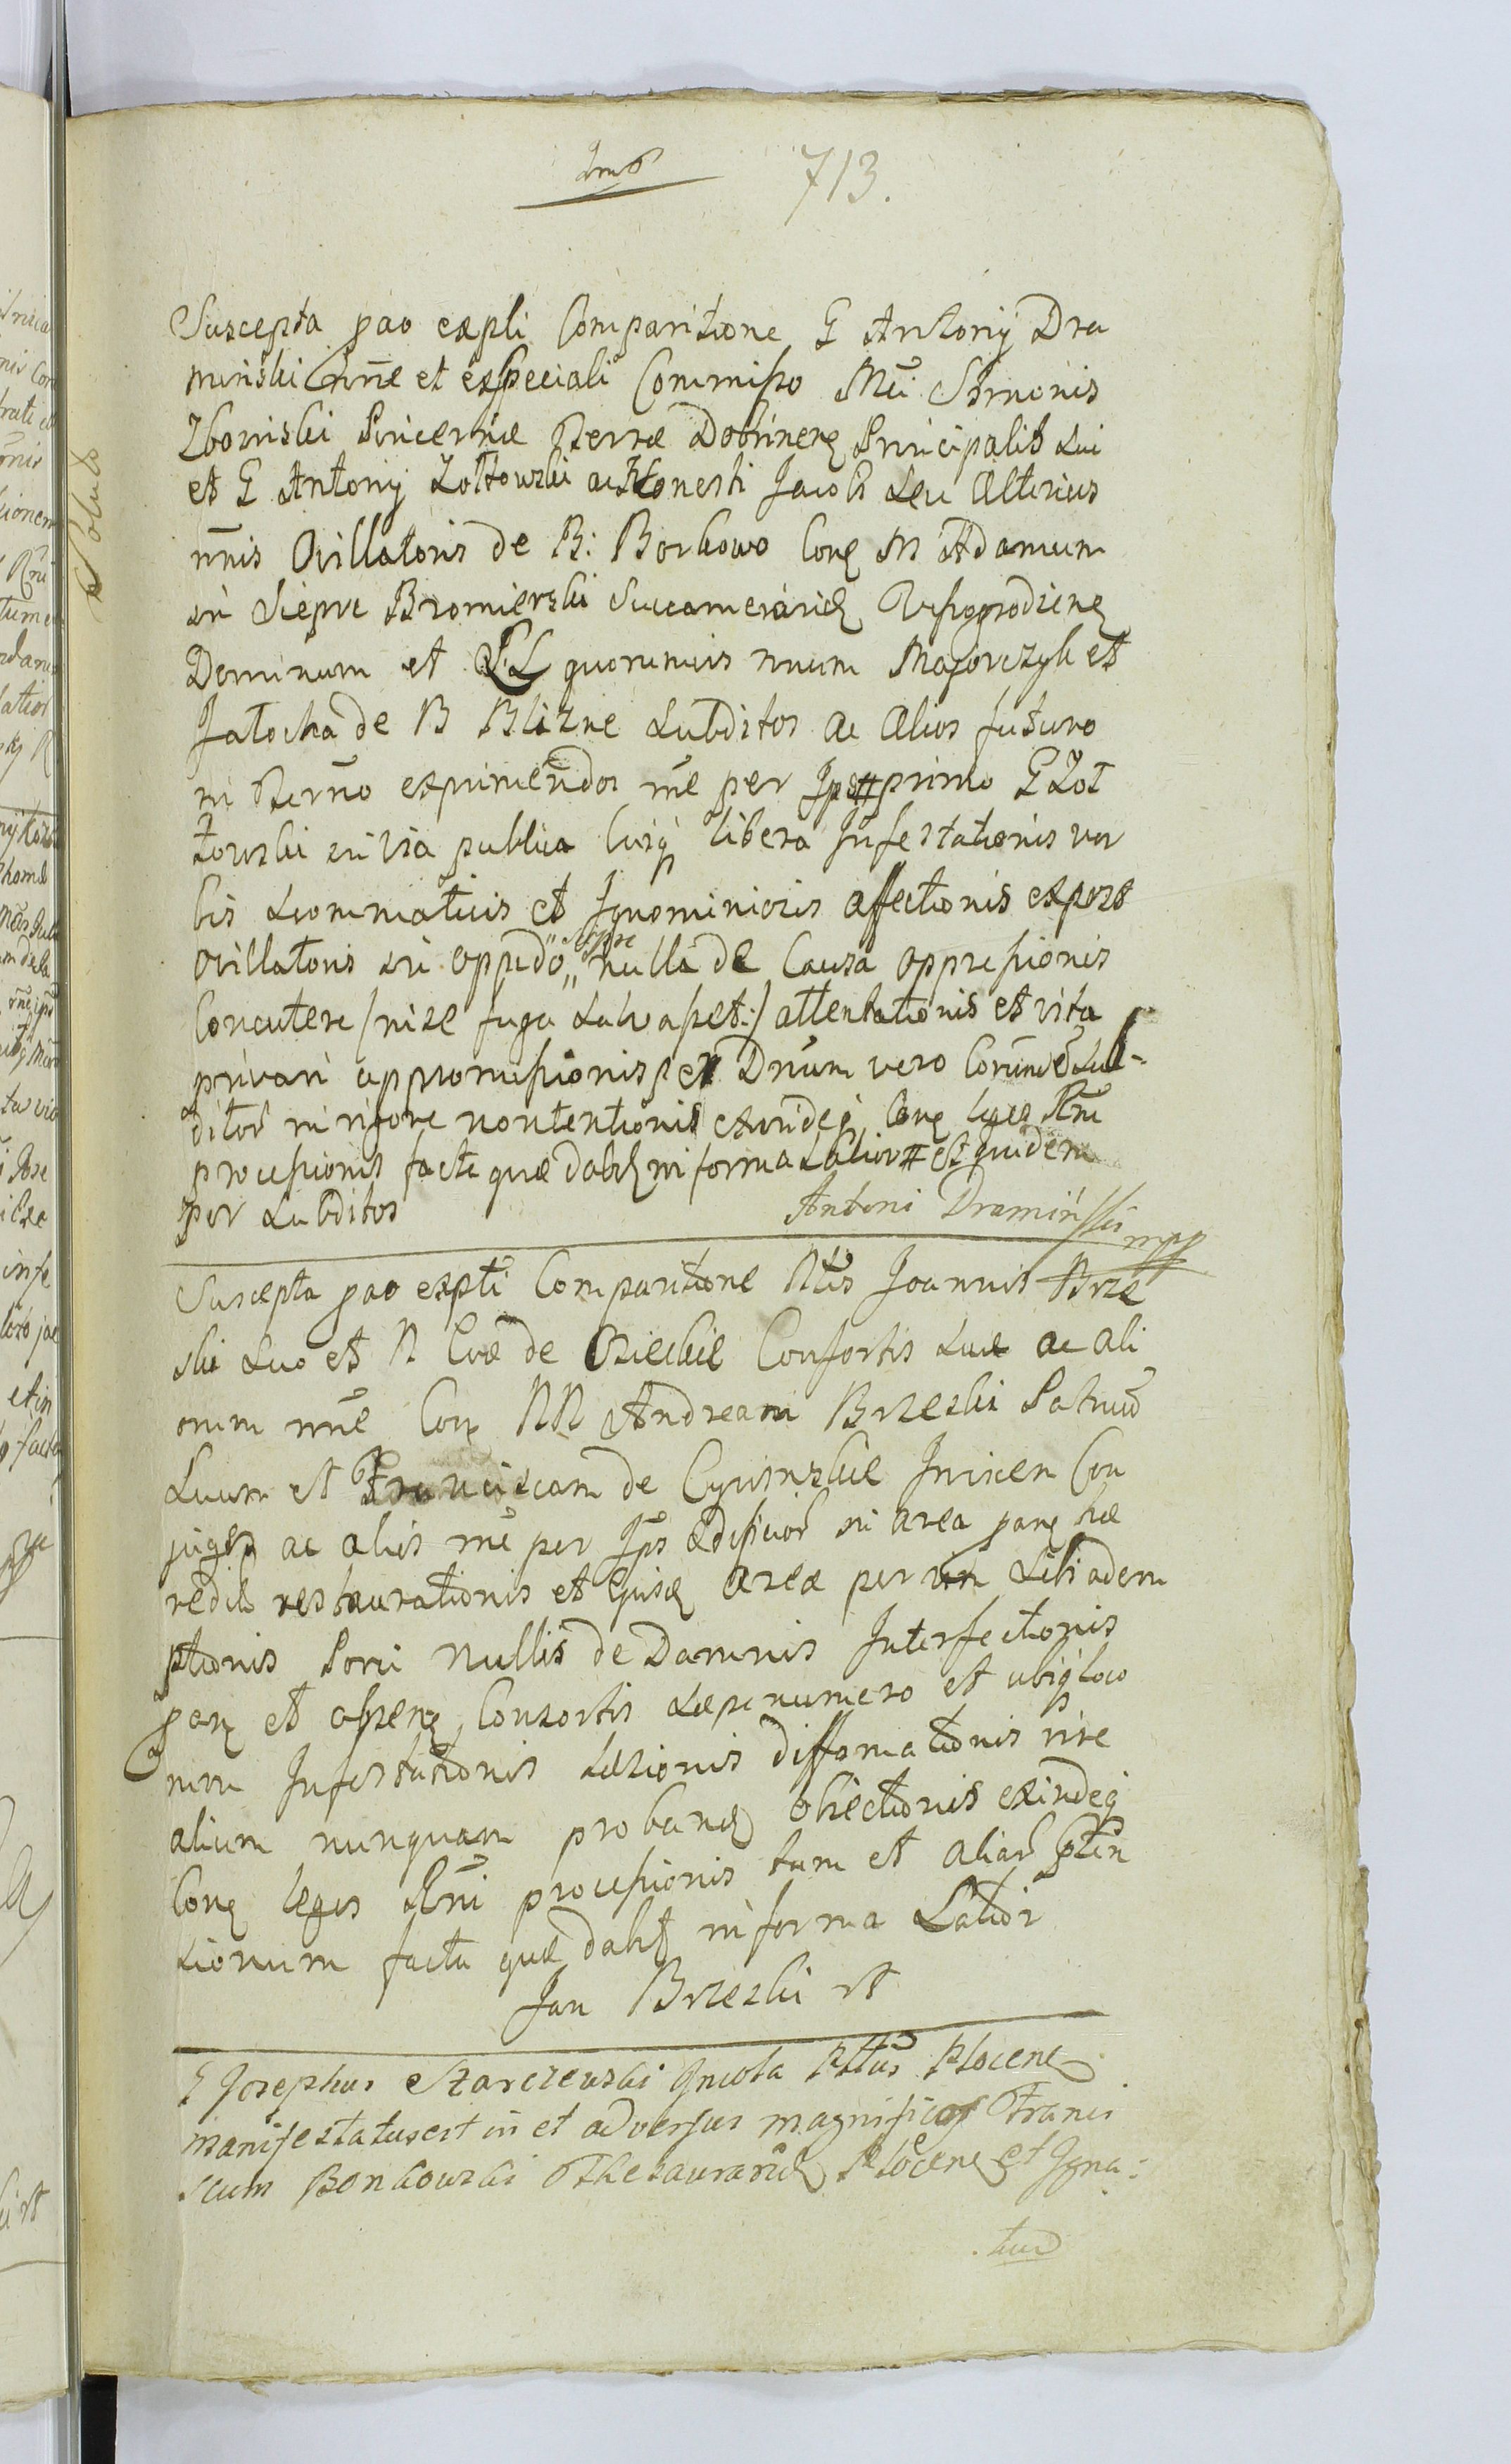 713.
Suscepta pao expli Comparitione G Antonij Dra
minski Nne et ex speciali Commisso Mci Simonis
Zboinski Pincernæ Terræ Dobrinen Principalis Sui
et G Antonij Zołtowski ac Honesti Jacobi seu alterius
nnis Ovillatoris de B: Borkowo Con M Adamum
in Sieprc Bromierski Succamerarid Wyszogrodzien
Dominum et LL quorumvis nnum Majorczyk et
Jatocha de B Blizne Subditos ac alios futuro
in Termno exprimendos me per Ips primo G Zoł
towski in via publica cuiq libera Infestationis ver
bis scommaticis et Ignominiosis affectionis expost
Ovillatoris in oppido Siprc nulla de Causa oppressionis
Concutere /nise fuga salvasset:/ attentationis et vita
privari appromissionis per Dnum vero Corunde Sub-
ditor in rigore non tentionis exindeq Con leges Rni
processionis facti quæ dabit in forma Latiori et quidem
per Subditos
Antoni Dramiński mpp
Suscepta pao expti Comparitione Nlis Joannis Brze
ski suo et N Evæ de Osieckie Consortis suæ ac ali
orum nne Con NN Andream Brzeski Patruu
suum et Franciscam de Cywinskie Invicem Con
juges ac alios me per Ips ædificior in area pane hæ
redit restaurationis et Ejusd areæ per vim sibi adem
ptionis Porci nullis de Damnis Interfectionis
pane et absen Consortis sæpenumero et ubiq loco
rum Infestationis læsionis diffamationis rise
alium nunquam proband obiectionis exindeq
Con leges Rni processionis tum et aliar Pten
sionum facta quæ dabit in forma Latiori
Jan Brzeski rt
G Josephus Starczewski Incola Pttus Plocen
manifestatus est in et adversus magnificos Franci
scum Bonkowski Thesaurarid Plocen et Igna:
.tiu